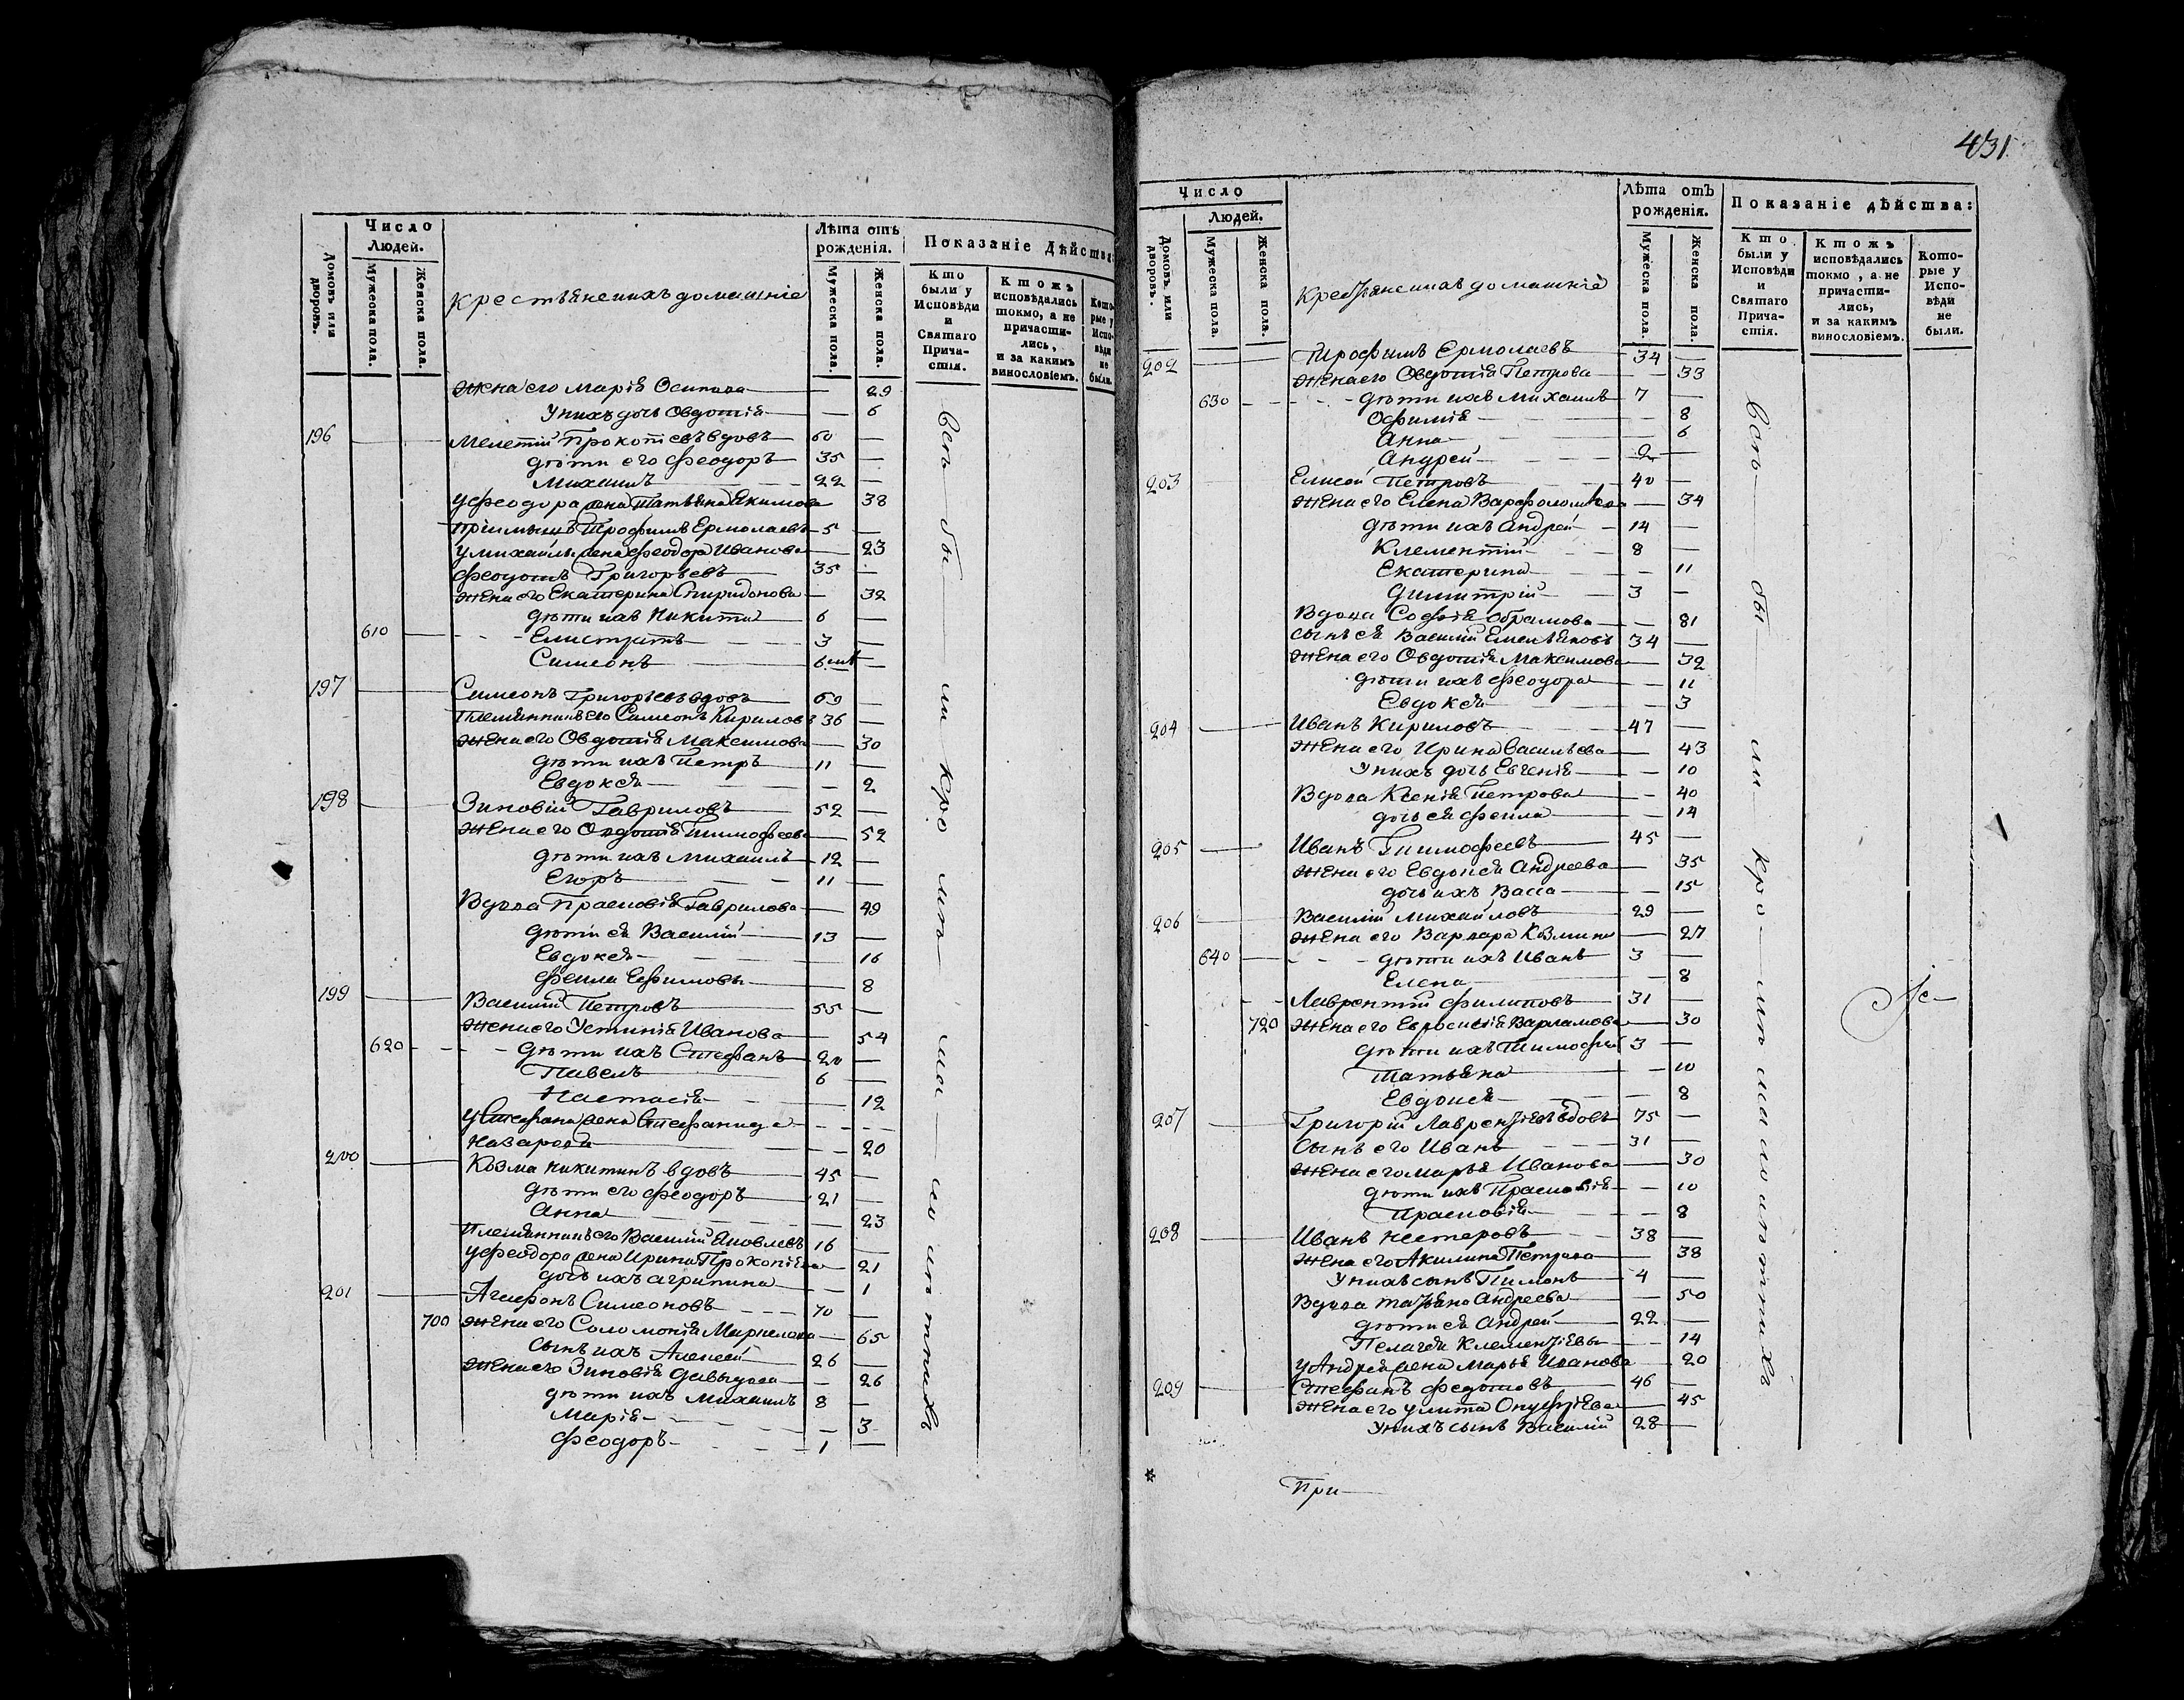 Число
Людей.
Домовъ или дворовъ.
Мужеска пола.
Женска пола.
Крестьяне и ихъ домашніе
Лѣта отъ рожденія.
Мужеска пола.
Женска пола.
Показаніе дѣйства:
Кто были у Исповѣди и Святаго Причастія.
Ктожъ исповѣдались токмо, а не причастились, и за какимъ винословіемъ.
Которые у Исповѣди не были.
Жена его Марія Осипова — 29
У нихъ дочь Овдотія — 6
196 Мелетій Прокопіевъ вдовъ 60 —
дѣти его Феодоръ 35 —
Михаилъ 22 —
У Феодора жена Татьяна Екимова 38
Пріимышъ Трофимъ Ермолаевъ 5 —
У Михаилы жена Феодора Иванова — 23
Феодотъ Григорьевъ 35 —
Жена его Екатерина Спиридонова — 32
дѣти ихъ Никита 6 —
610 Елистратъ 3 —
Симеонъ 6 —
197 Симеонъ Григорьевъ вдовъ 60 —
Племянникъ его Симеонъ Кириловъ 36 —
Жена его Овдотія Максимова — 30
дѣти ихъ Петръ 11 —
Евдокея — 2
198 Зиновій Гавриловъ 52 —
Жена его Овдотія Тимофеева — 52
дѣти ихъ Михаилъ 12 —
Егоръ 11 —
Вдова Прасковія Гаврилова — 49
дѣти ея Василій 13 —
Евдокея — 16
Фекла Ефимовы — 8
199 Василій Петровъ 55 —
Жена его Устинія Иванова — 54
620 дѣти ихъ Стефанъ 20 —
Павелъ 6 —
Настасія — 12
У Стефана жена Стефанида
Назарова — 20
200 Козма Никитинъ вдовъ 45 —
дѣти его Феодоръ 21 —
Анна — 23
Племянникъ его Василій Яковлевъ 16 —
У Феодора жена Ирина Прокопіева — 21
дочь ихъ Агрипина — 1
201 Агафонъ Симеоновъ 70 —
700 Жена его Соломонія Маркелова — 65
Сынъ ихъ Алексей 26 —
Жена его Зиновія Давыдова — 26
дѣти ихъ Михаилъ 8 —
Марія — 3
Феодоръ 1 —
431
Число
Людей.
Домовъ или дворовъ.
Мужеска пола.
Женска пола.
Крестьяне и ихъ домашніе
Лѣта отъ рожденія.
Мужеска пола.
Женска пола.
Показаніе дѣйства:
Кто были у Исповѣди и Святаго Причастія.
Ктожъ исповѣдались токмо, а не причастились, и за какимъ винословіемъ.
Которые у Исповѣди не были.
202 Трофимъ Ермолаевъ 34 —
Жена его Овдотія Петрова — 33
630 дѣти ихъ Михаилъ 7 —
Офимія — 8
Анна — 6
Андрей 2 —
203 Елисей Петровъ 40 —
Жена его Елена Варфоломѣева — 34
дѣти ихъ Андрей 14 —
Клементій 8 —
Екатерина — 11
Димитрій 3 —
Вдова Софія Обрамова — 81
Сынъ ея Василій Емельяновъ 34 —
Жена его Овдотія Максимова — 32
дѣти ихъ Феодора — 11
Евдокея — 3
204 Иванъ Кириловъ 47 —
Жена его Ирина Васильева — 43
У нихъ дочь Евгенія — 10
Вдова Ксенія Петрова — 40
дочь ея Фекла — 14
205 Иванъ Тимофеевъ 45 —
Жена его Евдокея Андреева — 35
дочь ихъ Васса — 15
206 Василій Михайловъ 29 —
Жена его Варвара Козмина — 27
640 дѣти ихъ Иванъ 3 —
Елена — 8
Лаврентій Филиповъ 31 —
720 Жена его Евросинія Варламова — 30
дѣти ихъ Тимофей 3 —
Татьяна — 10
Евдокея — 8
207 Григорій Лаврентіевъ вдовъ 75 —
Сынъ его Иванъ 31 —
Жена его Марья Иванова — 30
дѣти ихъ Прасковія — 10
Прасковія — 8
208 Иванъ Нестеровъ 38 —
Жена его Акилина Петрова — 38
У нихъ сынъ Пимонъ 4 —
Вдова Татьяна Андреева — 50
дѣти ея Андрей 22 —
Пелагея Клементіевы — 14
У Андрея жена Марья Иванова 20
209 Стефанъ Федотовъ 46 —
Жена его Улита Онуфріева — 45
У нихъ сынъ Василій 28 —
При